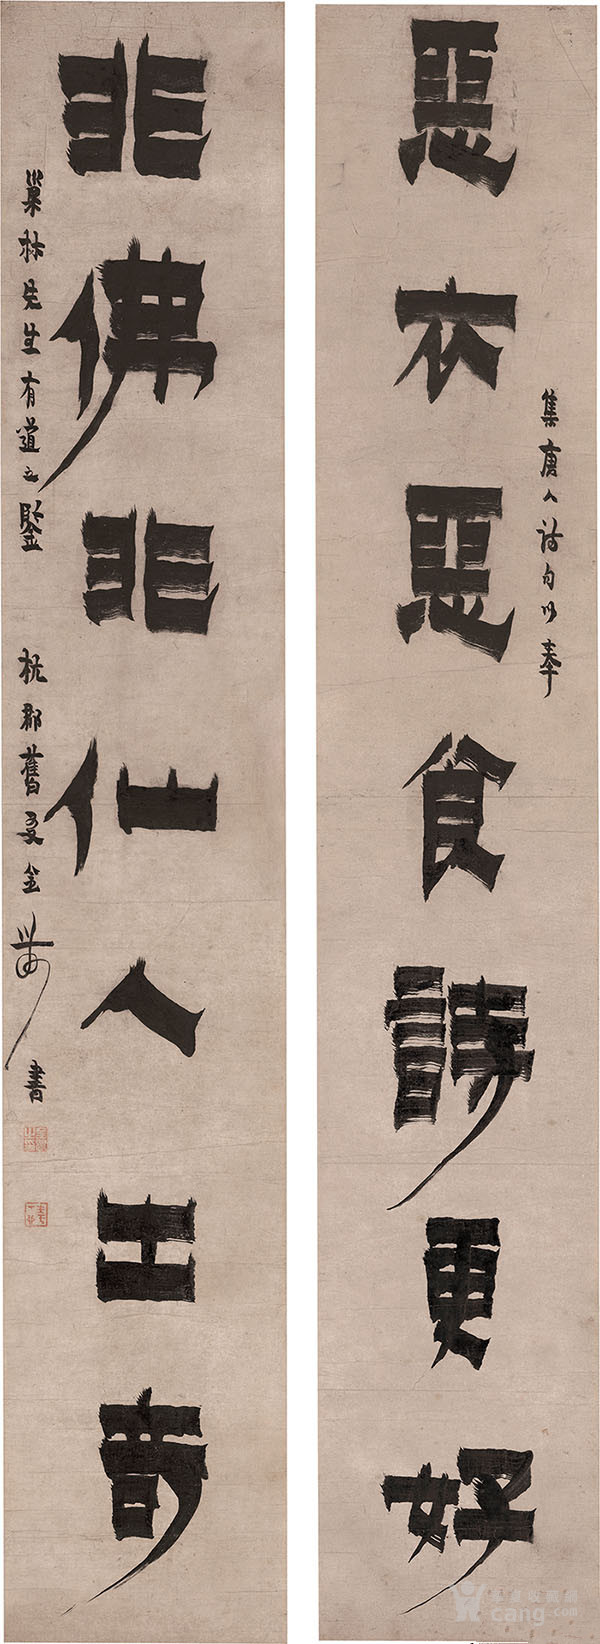 集唐人詩句以奉
惡衣惡食詩更好
非佛非仙人出奇
巢林先生有道之鑒
杭郡舊友金農書
华夏收藏网
cang.com